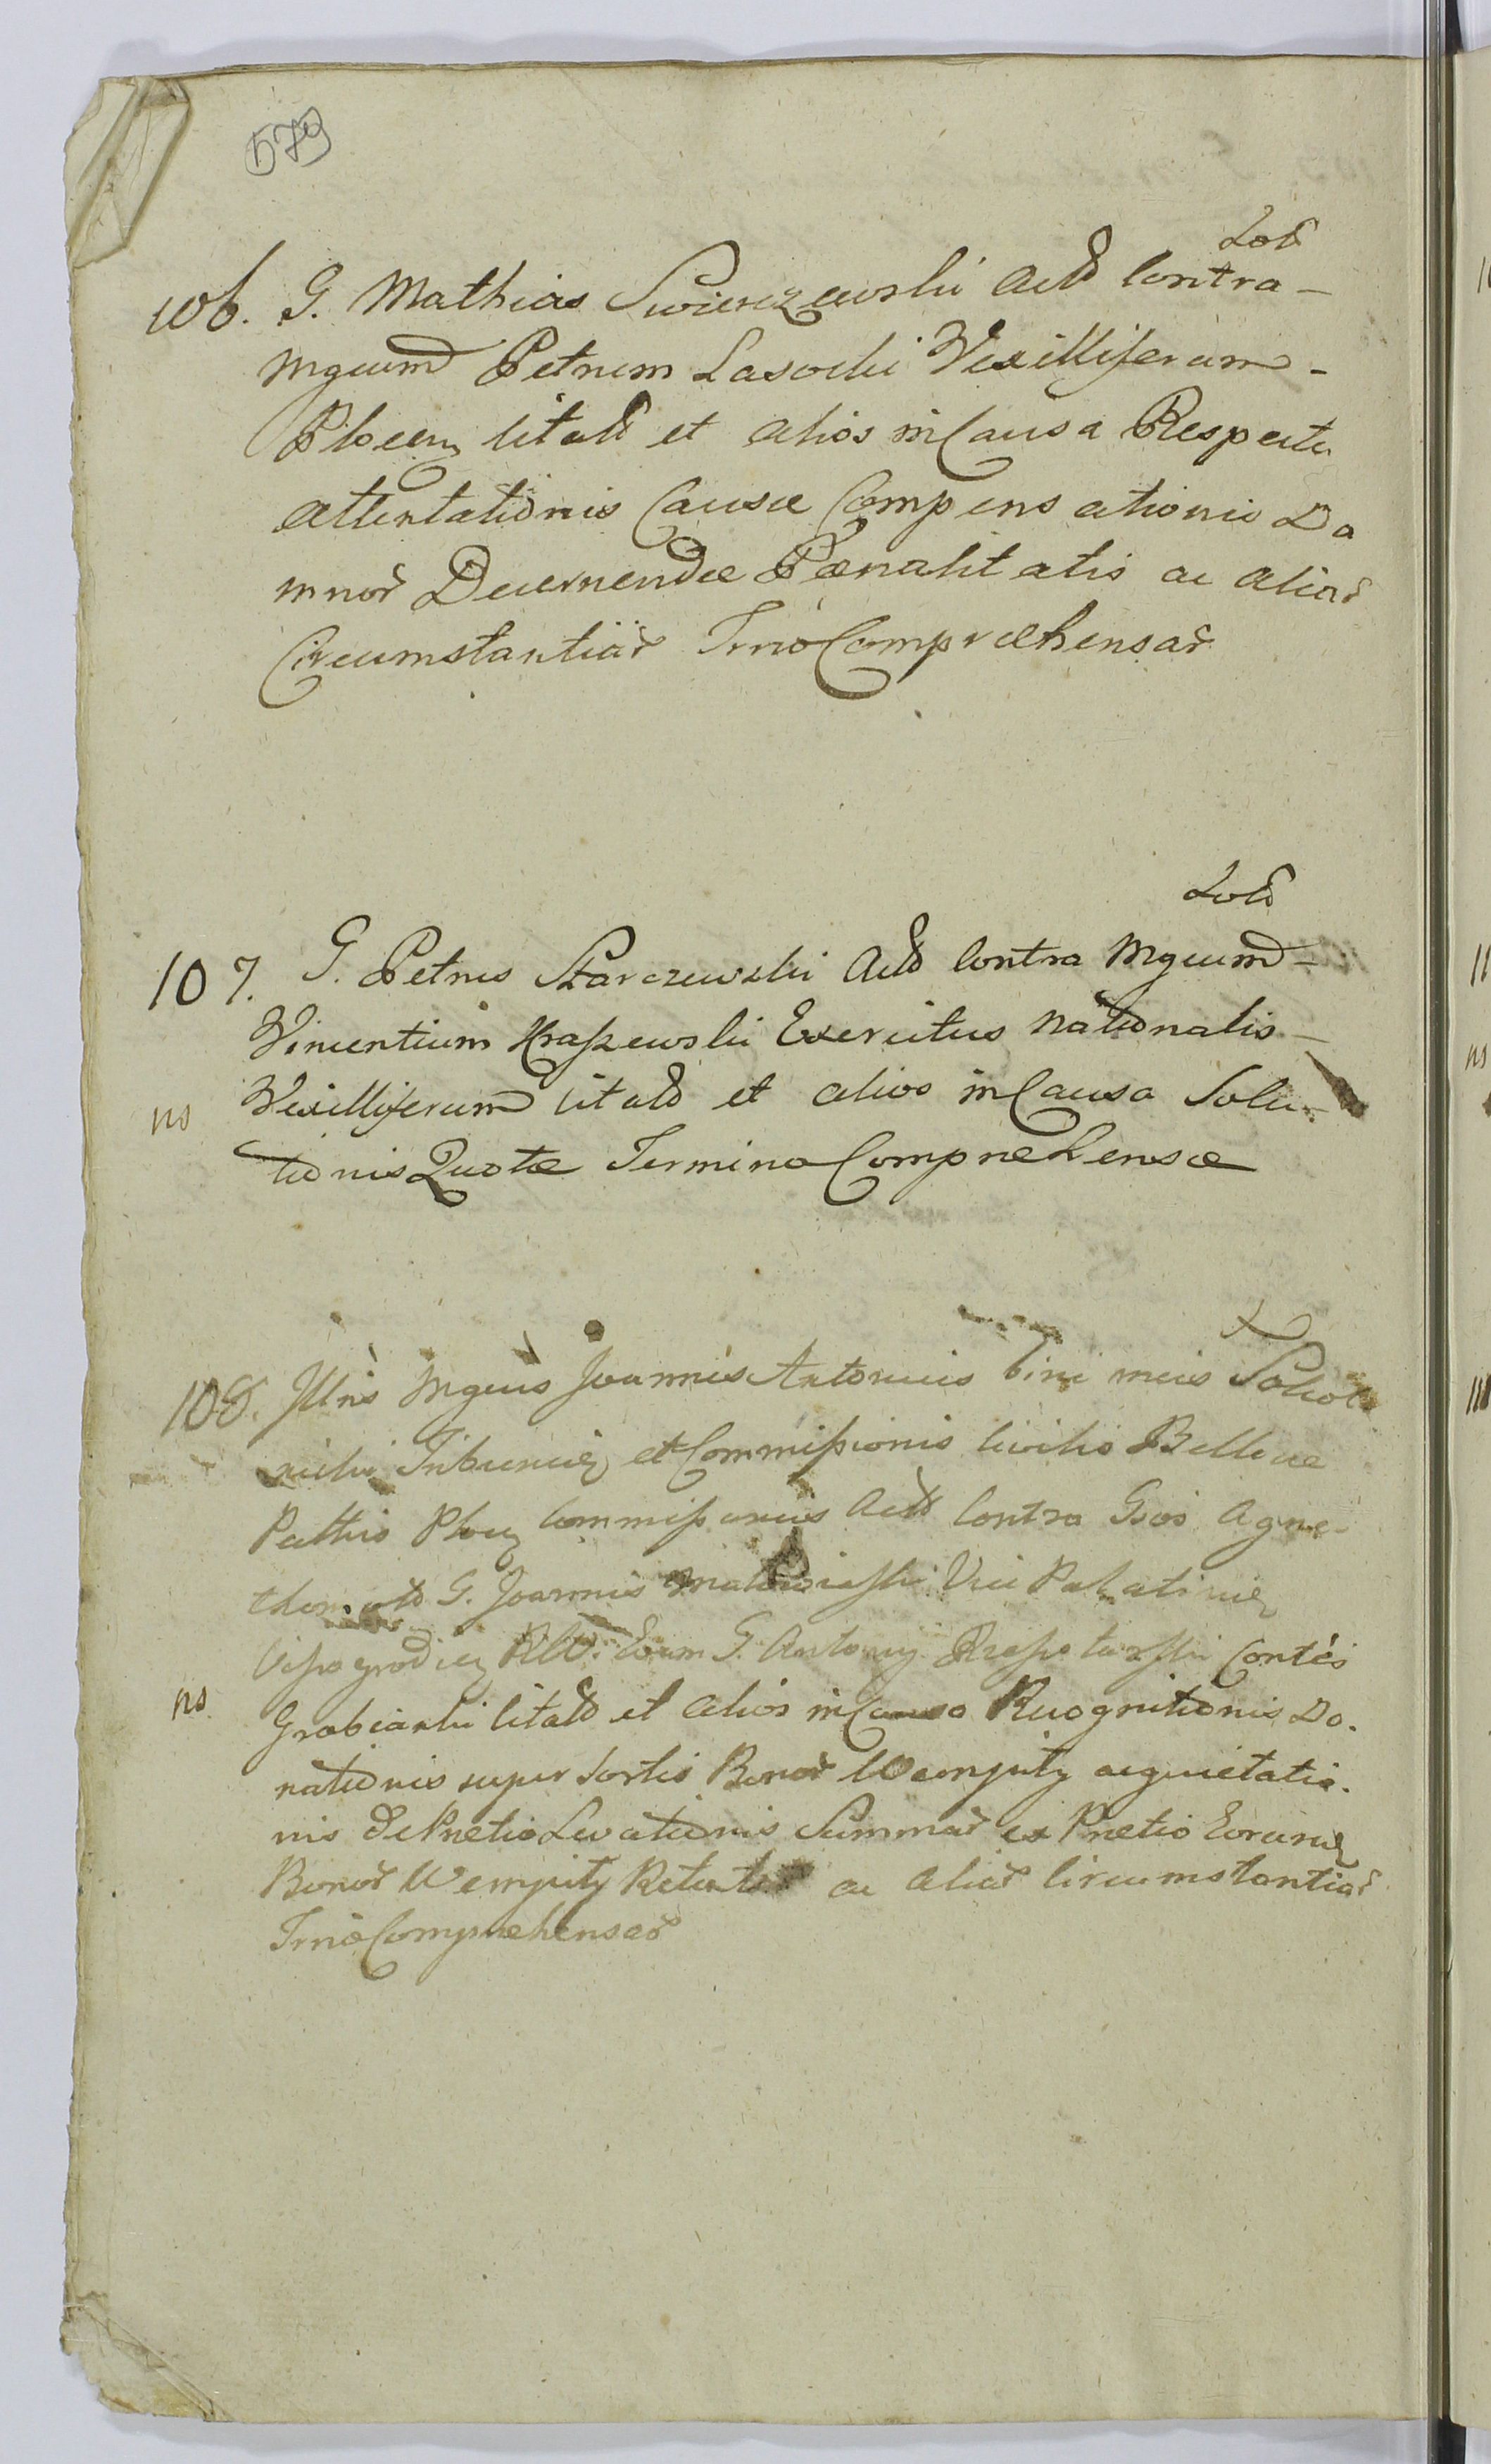 579
Lod
106. G. Mathias Swierczewski Actō Contra –
Mgcum Petrum Lasocki Vexilliferum –
Plocen Citatō et alios in Causa Respectu
attentationis Causæ Compensationis Da
mnor̃ Decernendæ Pænalitatis ac aliar̃
Circumstantiar̃ Trno Compræhensar̃
Lod
107. G. Petrus Starczewski Actō Contra Mgcum –
Vincentium Kraszewski Exercitus Nationalis –
ns Vexilliferum Citatō et alios in Causa Solu-
tionis Quotæ Termino Compræhensæ
108. Illris Mgcus Joannes Antonius
Tribunid et Commissionis Civilis Bellicæ
Pattus Plocen Commissarius Actō Contra Gsos Agne-
G. Joannis Vice Palatinid
Visogrodien Eorum G. Antony Contes
ns Grabianki Citatō et alios in Causa Recognitionis Do-
nationis super Sortis Bonor̃ Wempity acquietatio-
nis de Prætio Levationis Summar̃ ex Prætio Eorund
Bonor̃ Wempity ac aliar̃ Circumstantiar̃
Trno Compræhensar̃